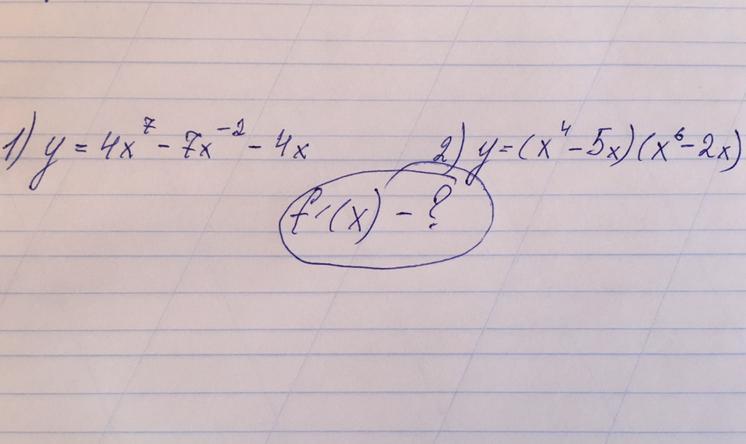 1) y = 4x⁷ - 7x⁻² - 4x 2) y = (x⁴ - 5x)(x⁶ - 2x)
f'(x) - ?